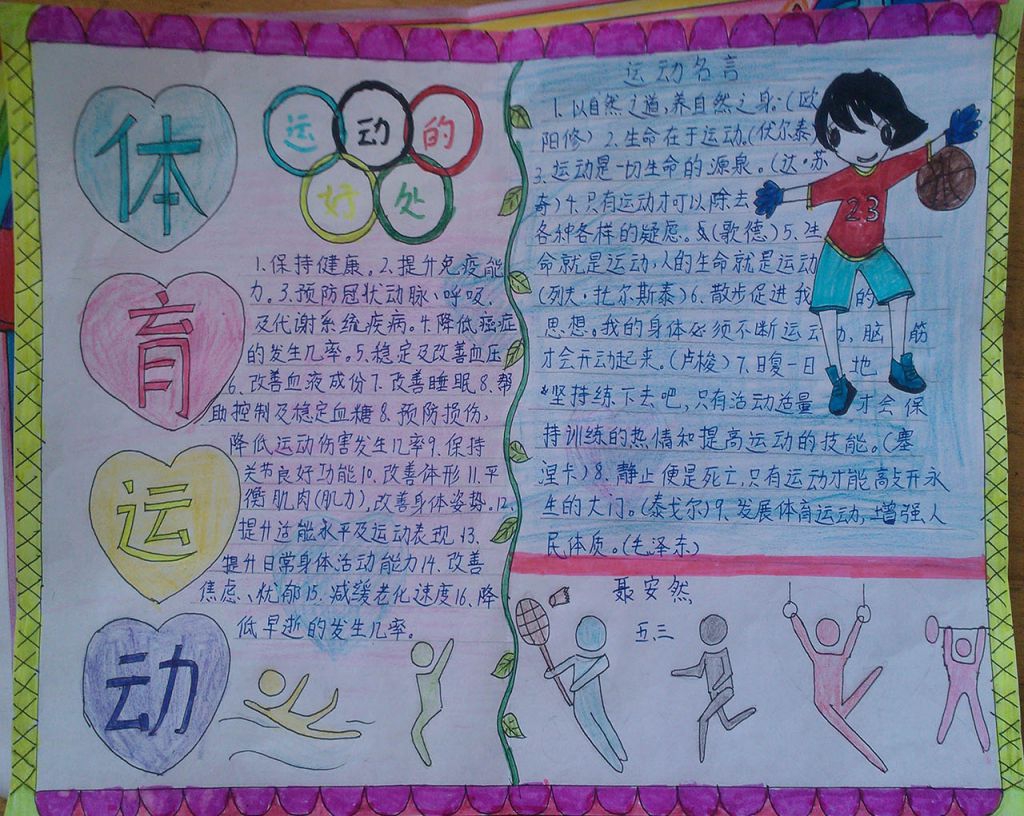 体
育
运
动
运动的
好处
1.保持健康。2.提升免疫能
力。3.预防冠状动脉、呼吸、
及代谢系统疾病。4.降低癌症
的发生几率。5.稳定及改善血压
6.改善血液成份7.改善睡眠8.帮
助控制及稳定血糖8.预防损伤,
降低运动伤害发生几率9.保持
关节良好功能10.改善体形11.平
衡肌肉(肌力),改善身体姿势。12.
提升适能水平及运动表现13.
提升日常身体活动能力14.改善
焦虑、忧郁15.减缓老化速度16.降
低早逝的发生几率。
运动名言
1.以自然之道,养自然之身.(欧
阳修)2.生命在于运动.(伏尔泰)
3.运动是一切生命的源泉。(达·芬
奇)4.只有运动才可以除去
各种各样的疑虑。(歌德)5.生
命就是运动,人的生命就是运动
(列夫·托尔斯泰)6.散步促进我的
思想。我的身体必须不断运动,脑筋
才会开动起来。(卢梭)7.日复一日地
坚持练下去吧,只有活动适量才会保
持训练的热情和提高运动的技能。(塞
涅卡)8.静止便是死亡,只有运动才能敲开永
生的大门。(泰戈尔)9.发展体育运动,增强人
民体质。(毛泽东)
23
聂安然
五.三